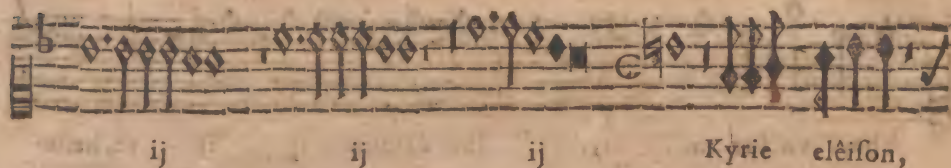 ij ij ij Kyrie elêiſon,